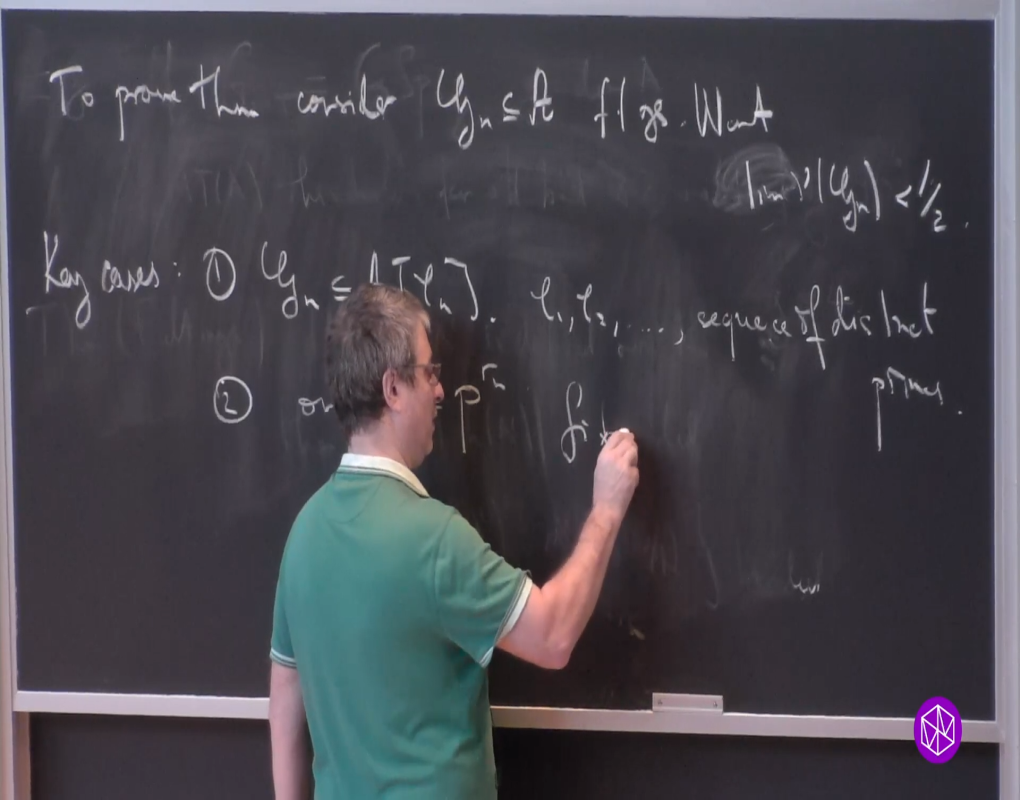 To prove thm consider 𝒢ₙ ⊆ A fl gs. Want
lim ν(𝒢ₙ) < 1/2.
Key cases: ① 𝒢ₙ ⊆ A[ℓₙ]. ℓ₁, ℓ₂, ...., sequence of distinct
primes.
② p^rₙ fix